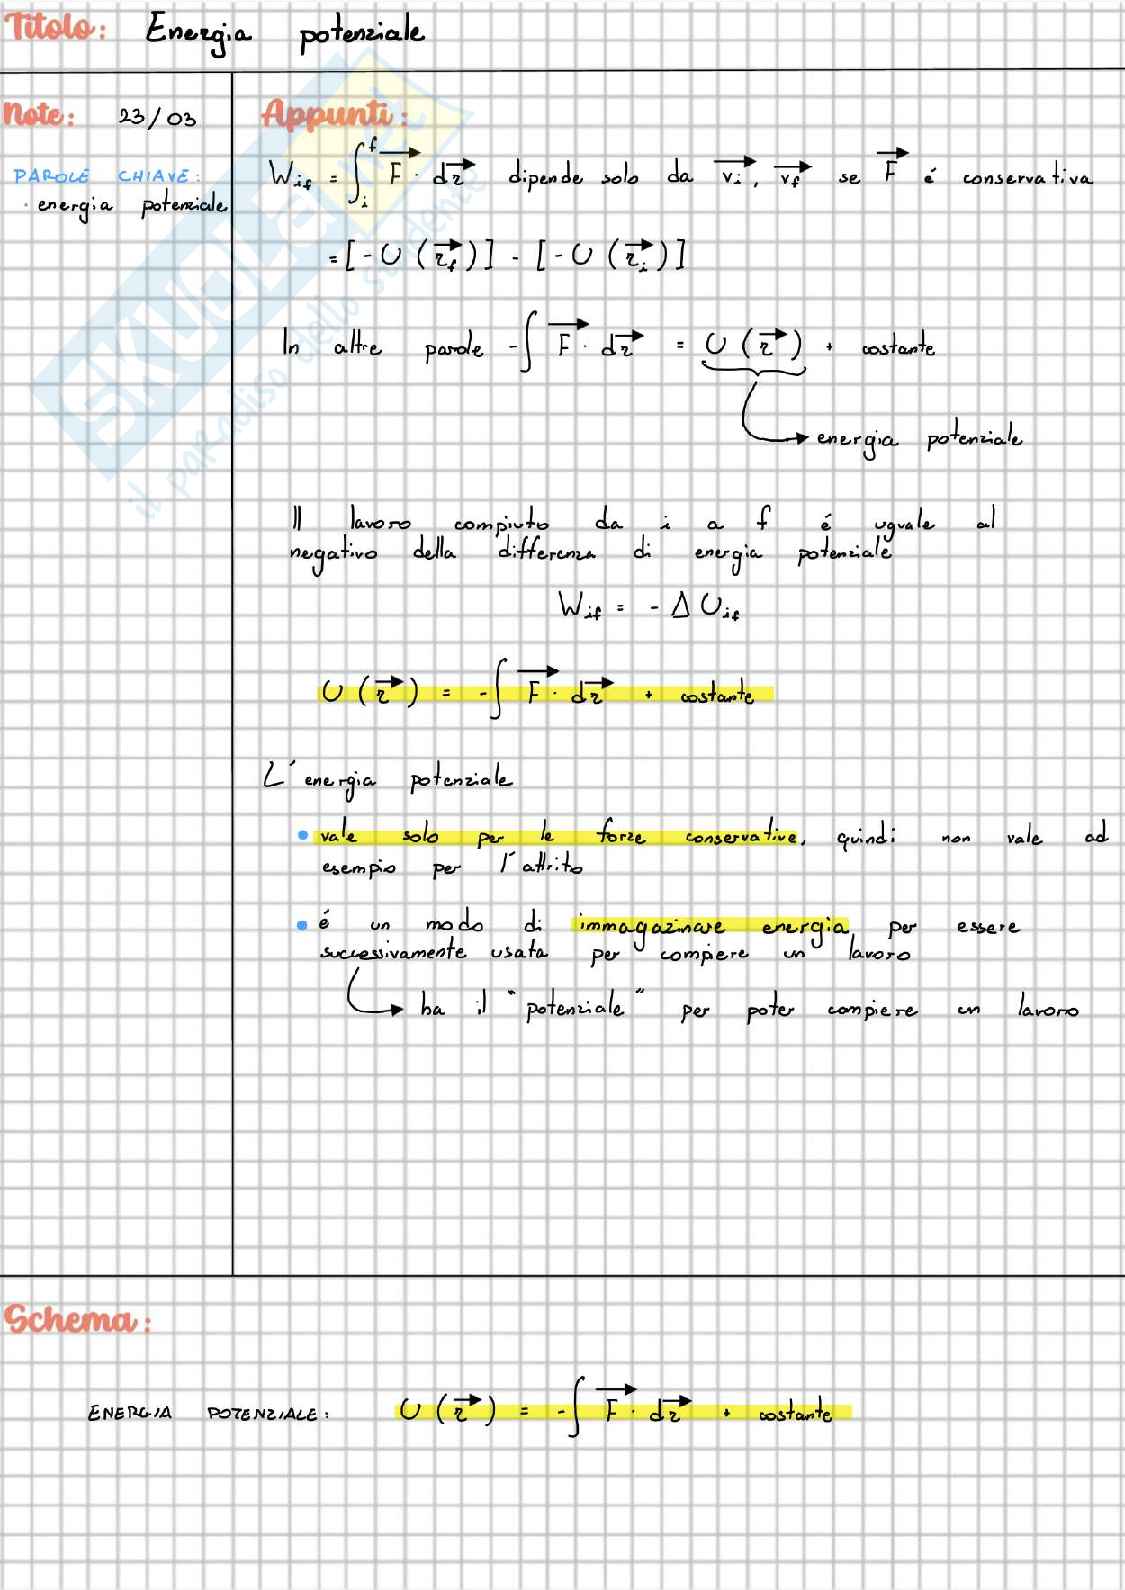 Titolo: Energia potenziale
Note: 23/03
PAROLE CHIAVE:
· energia potenziale
Appunti:
W_if = ∫_i^f F⃗ · dr⃗ dipende solo da v⃗_i, v⃗_f se F⃗ é conservativa
= [-U (r⃗_f)] - [-U (r⃗_i)]
In altre parole -∫ F⃗ · dr⃗ = U (r⃗) + costante
energia potenziale
Il lavoro compiuto da i a f é uguale al
negativo della differenza di energia potenziale
W_if = - Δ U_if
U (r⃗) = -∫ F⃗ · dr⃗ + costante
L'energia potenziale
• vale solo per le forze conservative, quindi non vale ad
esempio per l'attrito
• é un modo di immagazinare energia per essere
successivamente usata per compiere un lavoro
ha il "potenziale" per poter compiere un lavoro
Schema:
ENERGIA POTENZIALE: U (r⃗) = -∫ F⃗ · dr⃗ + costante
SKUOLA.net
il paradiso dello studente